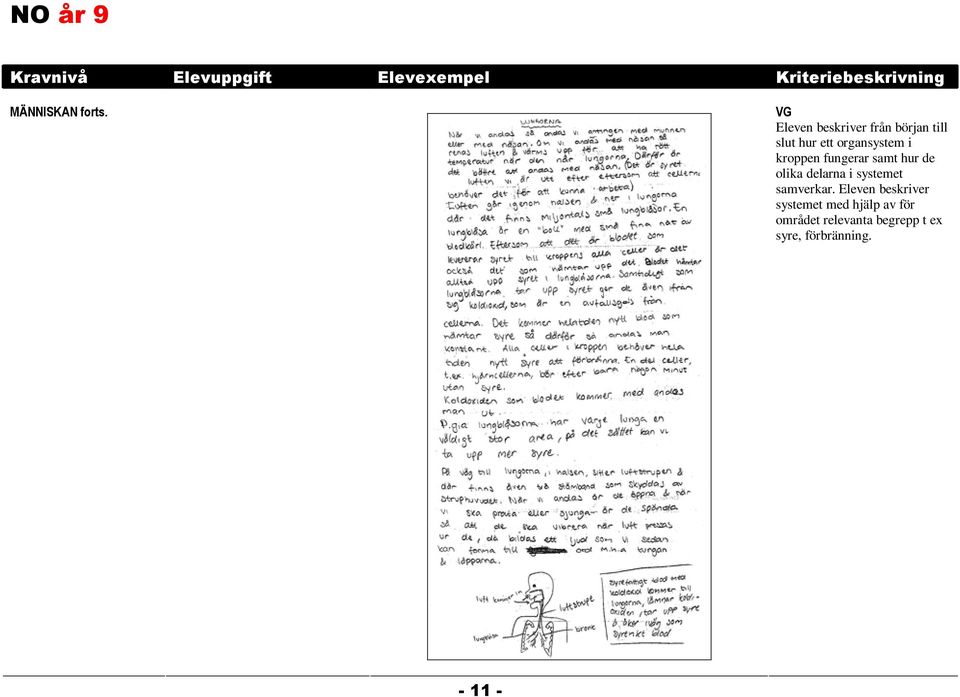 NO år 9
Kravnivå Elevuppgift Elevexempel Kriteriebeskrivning
MÄNNISKAN forts.
LUNGORNA
När vi andas så andas vi antingen med munnen
eller med näsan. Om vi andas med näsan så
renas luften & värms upp för att ha rött
temperatur när den når lungorna. Därför är
det bättre att andas med näsan. (Det är syret
luften vi är ute efter eftersom att cellerna
behöver det för att kunna arbeta)
Luften går igenom halsen & ner i lungorna
där det finns Miljontals små lungblåsor. En
lungblåsa är en "boll" med små fina nät av
blodkärl. Eftersom att det är blodet som
levererar syret till kroppens alla celler är det
också det som hämtar upp det. Blodet hämtar
alltså upp syret i lungblåsorna. Samtidigt som
lungblåsorna tar upp syret ger de även ifrån
sig koldioxid, som är en avfallsgas från
cellerna. Det kommer hela tiden nytt blod som
hämtar syre så därför så andas man
konstant. Alla celler i kroppen behöver hela
tiden nytt syre att förbränna. En del celler,
t.ex. hjärncellerna, dör efter bara någon minut
utan syre.
Koldioxiden som blodet kommer med andas
man ut.
P.gia lungblåsorna har varje lunga en
väldigt stor area, på det sättet kan vi
ta upp mer syre.
På väg till lungorna, i halsen, sitter luftstrupen &
där finns även två stämband som skyddas av
struphuvudet. När vi andas är de öppna & när
vi ska prata eller sjunga är de spända
så att de ska vibrera när luft pressas
ur de, då bildas ett ljud som vi sedan
kan forma till ord m.h.a tungan
& läpparna.
luft kommer in
luftstrupe
lungblåsa
bronk
Syrefattigt blod med
koldioxid kommer till
lungorna, lämnar koldi-
oxiden, tar upp syre
& åker iväg som
syrerikt blod
VG
Eleven beskriver från början till
slut hur ett organsystem i
kroppen fungerar samt hur de
olika delarna i systemet
samverkar. Eleven beskriver
systemet med hjälp av för
området relevanta begrepp t ex
syre, förbränning.
- 11 -